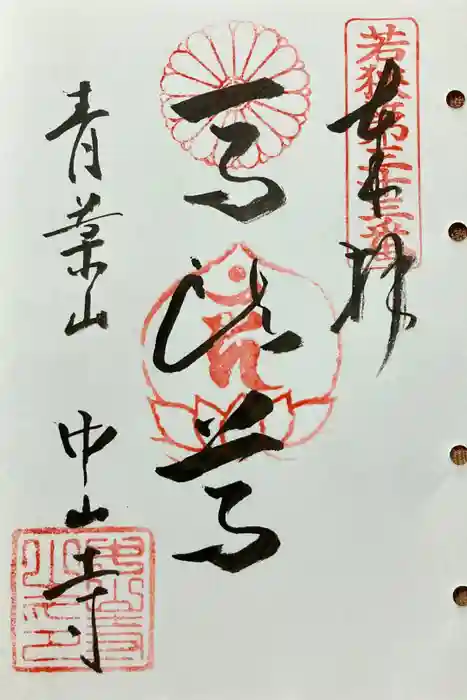 若狭第三十三番
奉拝
馬頭尊
青葉山
中山寺